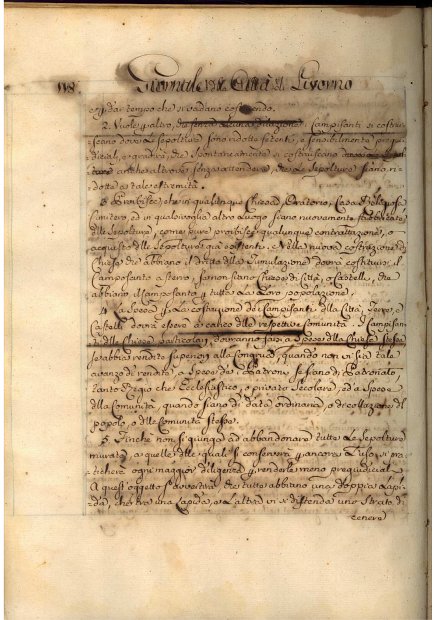 118 Giornale della Città di Livorno
e di dar tempo che si vadano costruendo.
2. Vuole inoltre, che senza Campisanti si costrui-
scano dove le Sepolture sono ridotte fetenti, e sensibilmente pregiu-
diciali, e gradirà, che spontaneamente si costruiscano
anche altrove senza attendere, che le Sepolture siano ri-
dotte a tale estremità.
3. Proibisce, che in qualunque Chiesa, Oratorio, Casa Religiosa
Cimitero, ed in qualsivoglia altro Luogo siano nuovamente fabbricate
delle Sepolture, come pure proibisce qualunque contrattazione, o
acquisto delle Sepolture già esistenti. Nella nuova costruzione di
Chiese che abbiano il dritto della Tumulazione dovrà costituirsi il
Camposanto a sterro, se non siano Chiese di Città, o Castelli, che
abbiano il Camposanto per tutta la loro popolazione.
4. La Spesa per la costruzione dei Campisanti delle Città, Terre, e
Castelli dovrà essere a carico delle respettive Comunità. I Campisan-
ti delle Chiese particolari dovranno farsi a spese delle Chiese stesse
se abbian rendite superiori alla Congrua, quando non vi sia tale
avanzo di rendite, a spese dei Patroni se siano di Patronato,
tanto Regio che Ecclesiastico, o privato Secolare, ed a spese
della Comunità, quando siano di data ordinaria, o di collazione del
popolo, o delle Comunità stesse.
5. Finchè non si giunga ad abbandonare tutte le Sepolture
murate, a quelle delle quali si conserverà per ancora l'uso, si pra-
ticherà ogni maggior diligenza per renderle meno pregiudiciali.
A quest'oggetto si avvertirà che tutte abbiano una doppia Lapi-
da, e che tra una Lapida, e l'altra vi si distenda uno strato di
cenere